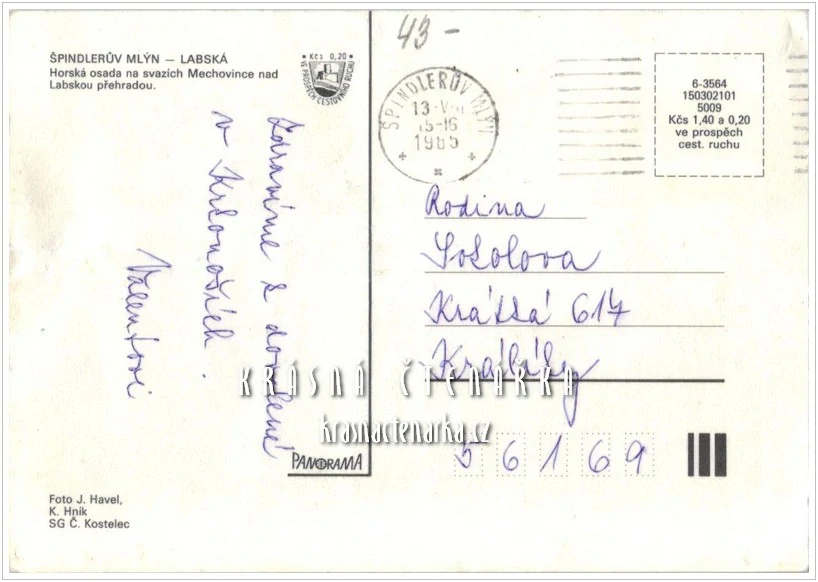 ŠPINDLERŮV MLÝN — LABSKÁ
Horská osada na svazích Mechovince nad
Labskou přehradou.
Kčs 0,20
VE PROSPĚCH CESTOVNÍHO RUCHU
43-
ŠPINDLERŮV MLÝN
13.
15-16
1985
6-3564
150302101
5009
Kčs 1,40 a 0,20
ve prospěch
cest. ruchu
Zdravíme z dovolené
v Krkonoších.
Valentovi
Rodina
Sokolova
Krátká 617
Králíky
56169
KRÁSNÁ ČTENÁŘKA
krasnactenarka.cz
PANORAMA
Foto J. Havel,
K. Hník
SG Č. Kostelec